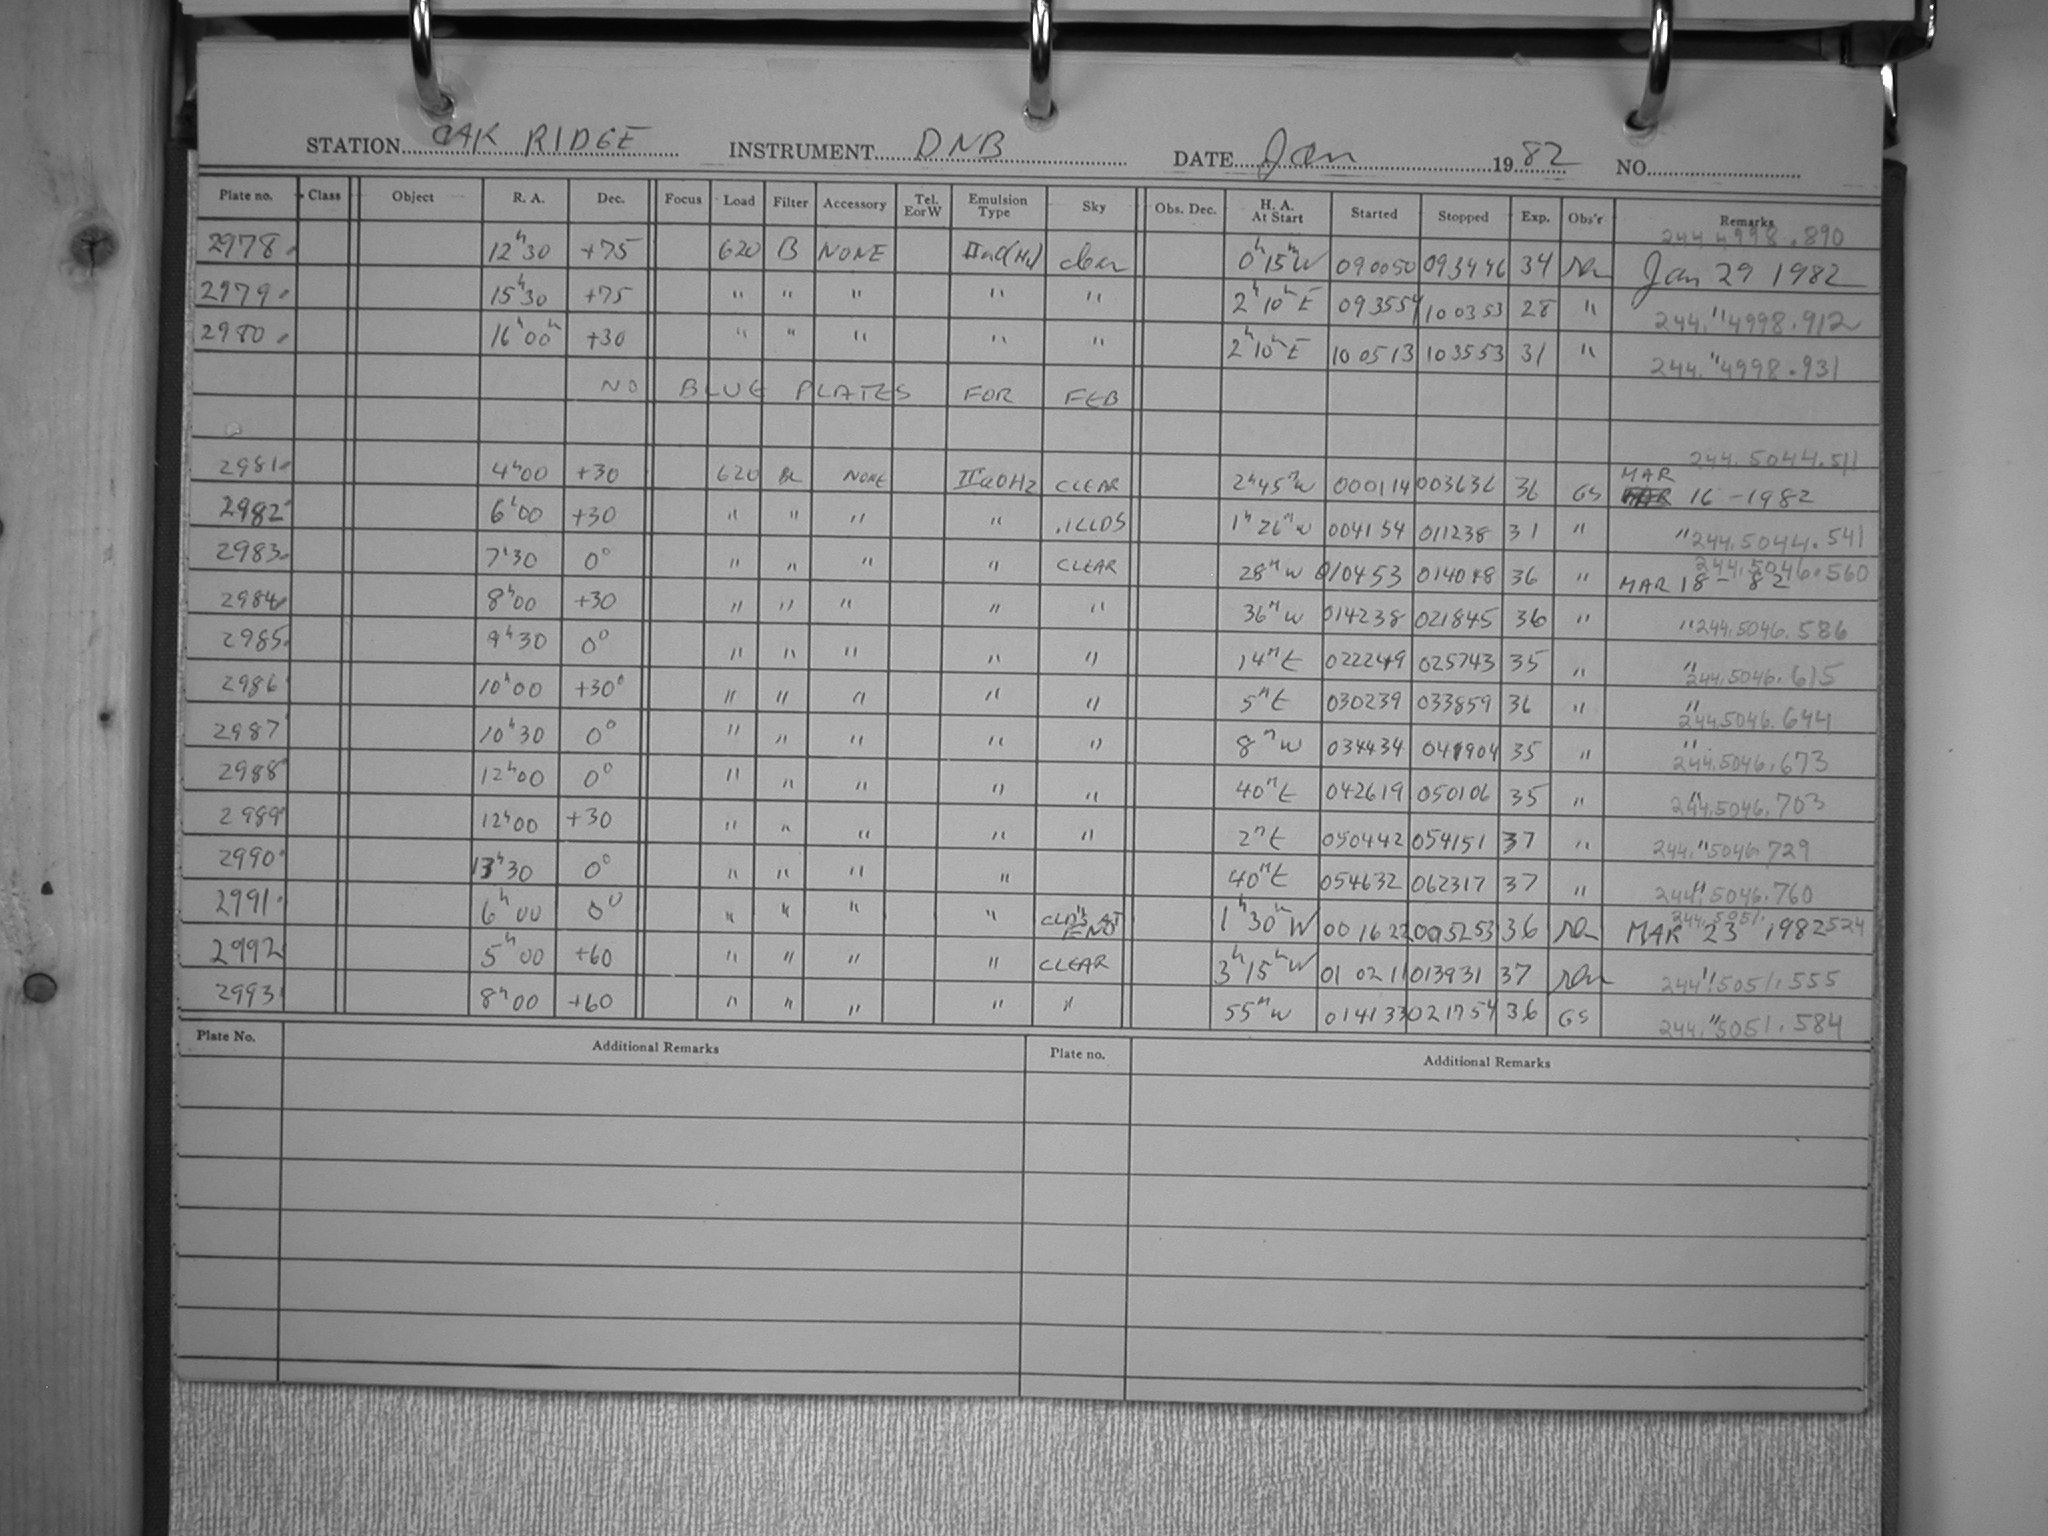 STATION OAK RIDGE INSTRUMENT DNB DATE Jan 1982 NO.
Plate no. Class Object R. A. Dec. Focus Load Filter Accessory Tel. E or W Emulsion Type Sky Obs. Dec. H. A. At Start Started Stopped Exp. Obs'r Remarks
244 4998.890
2978 12h30 +75 620 B NONE IIaO(H2) clear 0h15mW 090050 093446 34 Jan 29 1982
2979 15h30 +75 " " " " " 2h10mE 093554 100353 28 " " 244. 4998.912
2980 16h00m +30 " " " " " 2h10mE 100513 103553 31 " " 244. 4998.931
NO BLUE PLATES FOR FEB
244.5044.511
2981 4h00 +30 620 BL NONE IIaOH2 CLEAR 2h45mW 000114 003636 36 GS MAR 16 - 1982
2982 6h00 +30 " " " " .1CLDS 1h26mW 004154 011238 31 " " 244.5044.541
2983 7h30 0° " " " " CLEAR 28mW 010453 014048 36 " MAR 18 - 82 244.5046.560
2984 8h00 +30 " " " " " 36mW 014238 021845 36 " " 244.5046.586
2985 9h30 0° " " " " " 14mE 022249 025743 35 " " 244.5046.615
2986 10h00 +30° " " " " " 5mE 030239 033859 36 " " 244.5046.644
2987 10h30 0° " " " " " 8mW 034434 041904 35 " " 244.5046.673
2988 12h00 0° " " " " " 40mE 042619 050106 35 " " 244.5046.703
2989 12h00 +30 " " " " " 2mE 050442 054151 37 " " 244. 5046.729
2990 13h30 0° " " " " 40mE 054632 062317 37 " " 244. 5046.760
2991 6h00 0° " " " " CLDS AT END 1h30mW 001622 005253 36 MAR 23 1982 244.5051.524
2992 5h00 +60 " " " " CLEAR 3h15mW 010211 013931 37 " 244.5051.555
2993 8h00 +60 " " " " " 55mW 014133 021754 36 GS " 244.5051.584
Plate No. Additional Remarks Plate no. Additional Remarks